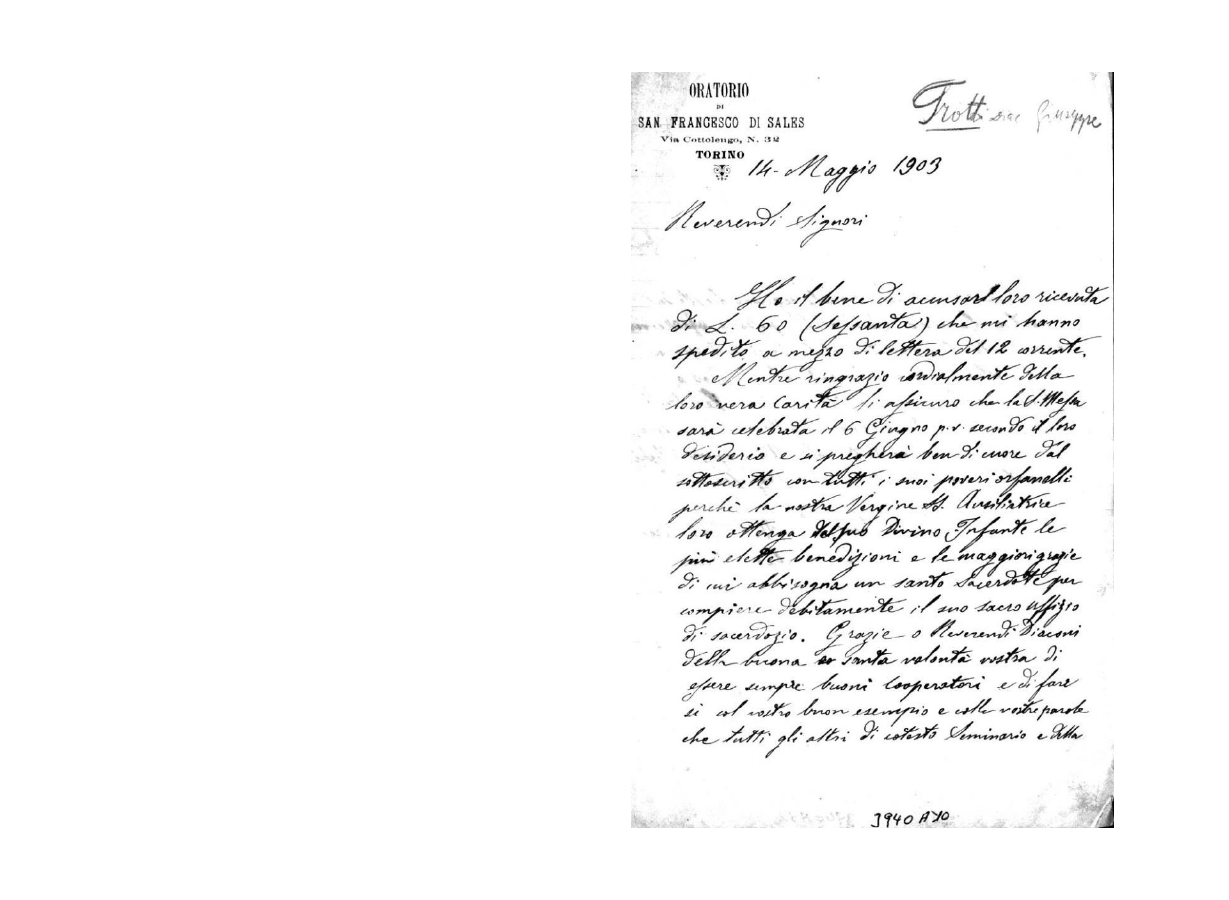 ORATORIO
DI
SAN FRANCESCO DI SALES
Via Cottolengo, N. 32
TORINO
Trotti diac Giuseppe
14 - Maggio 1903
Reverendi Signori
Ho il bene di accusar loro ricevuta
di L. 60 (Sessanta) che mi hanno
spedito a mezzo di lettera del 12 corrente.
Mentre ringrazio cordialmente della
loro vera Carità li assicuro che la S. Messa
sarà celebrata il 6 Giugno p. v. secondo il loro
desiderio e si pregherà ben di cuore dal
sottoscritto con tutti i suoi poveri orfanelli
perchè la nostra Vergine SS. Ausiliatrice
loro ottenga dal suo Divino Infante le
più elette benedizioni e le maggiori grazie
di cui abbisogna un santo Sacerdote per
compiere debitamente il suo sacro uffizio
di sacerdozio. Grazie o Reverendi Diaconi
della buona e santa volontà vostra di
essere sempre buoni Cooperatori e di fare
sì col vostro buon esempio e colle vostre parole
che tutti gli altri di cotesto Seminario e della
3940 A10